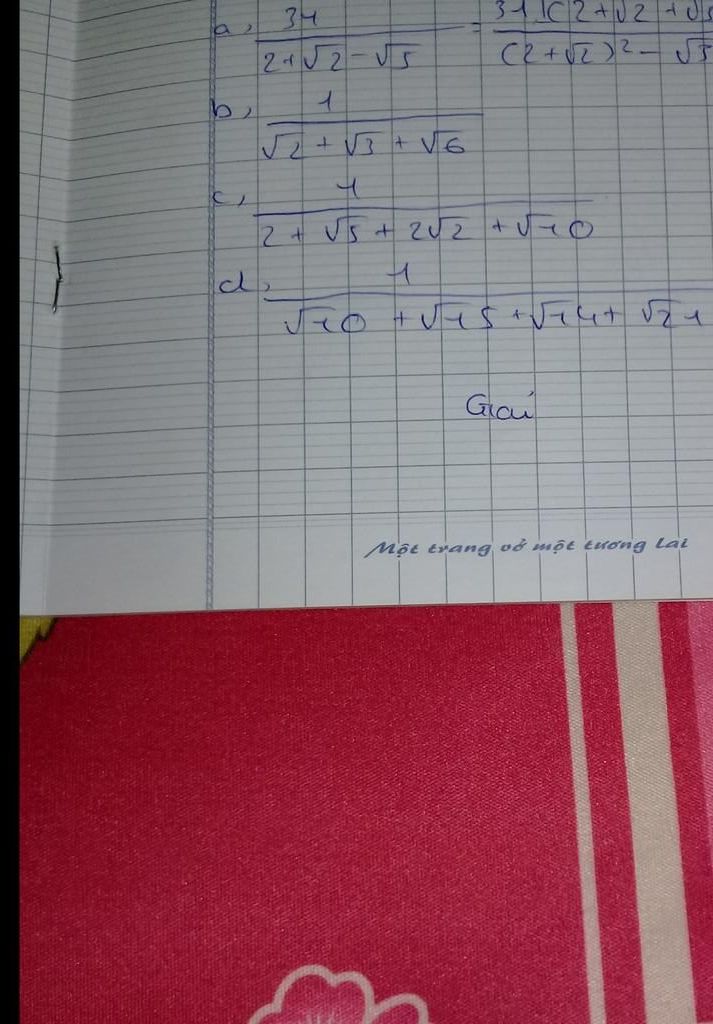 a, 31 / (2+√2 −√5) = 31 (2+√2 +√5 / ((2+√2)² − √5
b, 1 / (√2 + √3 + √6)
c, 1 / (2 + √5 + 2√2 + √10)
d, 1 / (√10 + √15 + √14 + √21)
Giải
Một trang vở một tương lai